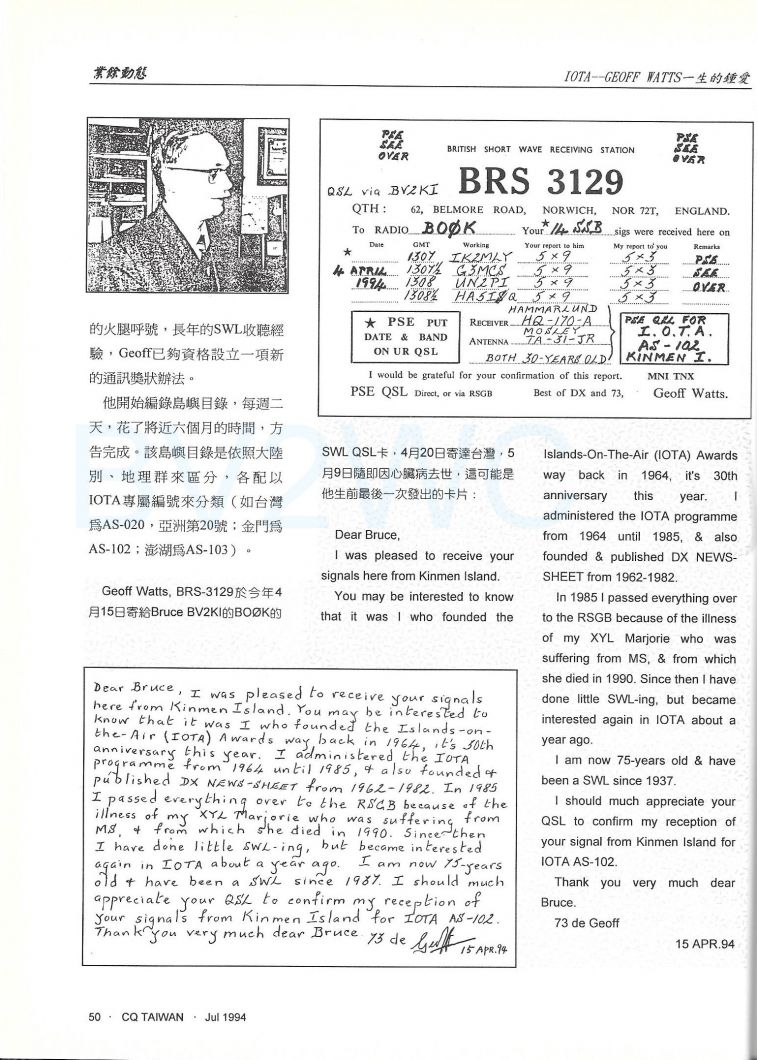 業餘動態
IOTA--GEOFF WATTS一生的鍾愛
的火腿呼號，長年的SWL收聽經
驗，Geoff已夠資格設立一項新
的通訊獎狀辦法。
他開始編錄島嶼目錄，每週二
天，花了將近六個月的時間，方
告完成。該島嶼目錄是依照大陸
別、地理群來區分，各配以
IOTA專屬編號來分類（如台灣
爲AS-020，亞洲第20號；金門爲
AS-102；澎湖爲AS-103）。
Geoff Watts, BRS-3129於今年4
月15日寄給Bruce BV2KI的BOØK的
PSE
SEE
OVER
BRITISH SHORT WAVE RECEIVING STATION
PSE
SEE
OVER
QSL via BV2KI
BRS 3129
QTH: 62, BELMORE ROAD, NORWICH, NOR 72T, ENGLAND.
To RADIO BOØK Your * 14 SSB sigs were received here on
Date GMT Working Your report to him My report to you Remarks
* 1307 IK2MLY 5×9 5×3 PSE
4 APRIL 1307½ G3MCS 5×9 5×3 SEE
1994 1308 UN2PI 5×9 5×3 OVER
1308½ HA5IØQ 5×9 5×3
★ PSE PUT
DATE & BAND
ON UR QSL
HAMMARLUND
RECEIVER HQ-170-A
MOSLEY
ANTENNA TA-31-JR
BOTH 30-YEARS OLD
PSE QSL FOR
I.O.T.A.
AS-102
KINMEN I.
I would be grateful for your confirmation of this report. MNI TNX
PSE QSL Direct, or via RSGB Best of DX and 73, Geoff Watts.
BV2WC
SWL QSL卡，4月20日寄達台灣，5
月9日隨即因心臟病去世，這可能是
他生前最後一次發出的卡片：
Dear Bruce,
I was pleased to receive your
signals here from Kinmen Island.
You may be interested to know
that it was I who founded the
Islands-On-The-Air (IOTA) Awards
way back in 1964, it's 30th
anniversary this year. I
administered the IOTA programme
from 1964 until 1985, & also
founded & published DX NEWS-
SHEET from 1962-1982.
In 1985 I passed everything over
to the RSGB because of the illness
of my XYL Marjorie who was
suffering from MS, & from which
she died in 1990. Since then I have
done little SWL-ing, but became
interested again in IOTA about a
year ago.
I am now 75-years old & have
been a SWL since 1937.
I should much appreciate your
QSL to confirm my reception of
your signal from Kinmen Island for
IOTA AS-102.
Thank you very much dear
Bruce.
73 de Geoff
15 APR.94
Dear Bruce, I was pleased to receive your signals
here from Kinmen Island. You may be interested to
know that it was I who founded the Islands-on-
the-Air (IOTA) Awards way back in 1964, it's 30th
anniversary this year. I administered the IOTA
programme from 1964 until 1985, & also founded &
published DX NEWS-SHEET from 1962-1982. In 1985
I passed everything over to the RSGB because of the
illness of my XYL Marjorie who was suffering from
MS, & from which she died in 1990. Since then
I have done little SWL-ing, but became interested
again in IOTA about a year ago. I am now 75-years
old & have been a SWL since 1937. I should much
appreciate your QSL to confirm my reception of
your signals from Kinmen Island for IOTA AS-102.
Thank you very much dear Bruce. 73 de Geoff 15 APR.94
50 · CQ TAIWAN · Jul 1994